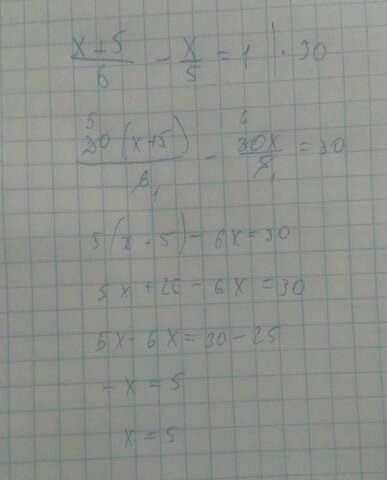 (x+5)/6 - x/5 = 1 | · 30
5 30(x+5)/6 1 - 6 30x/5 1 = 30
5(x+5) - 6x = 30
5x + 25 - 6x = 30
5x - 6x = 30 - 25
-x = 5
x = 5